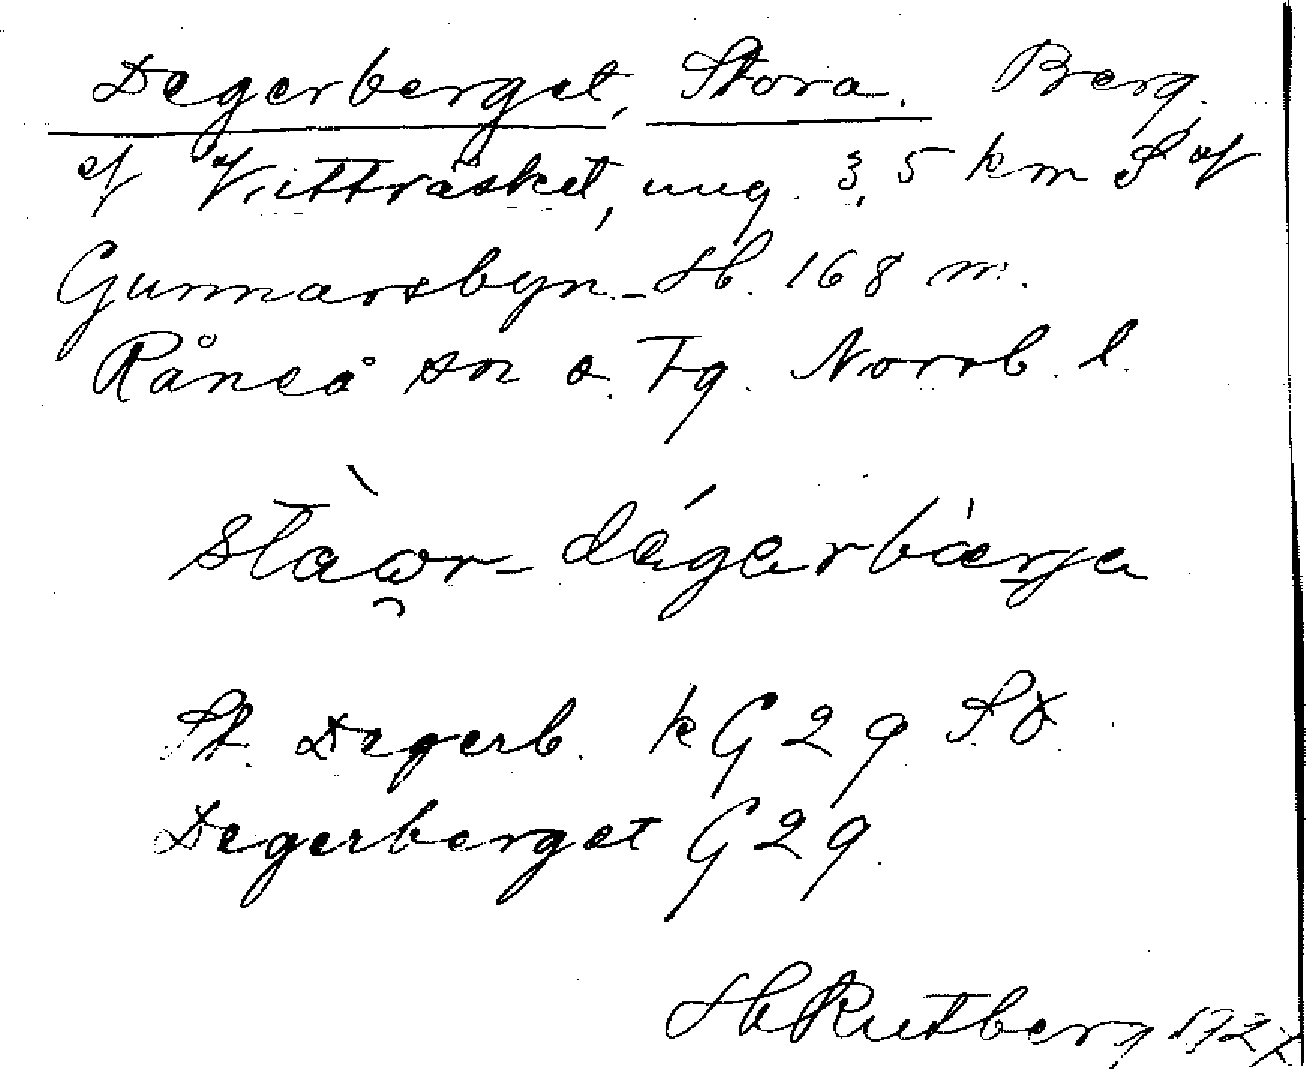 Degerberget, Stora. Berg.
vf Vitträsket, ung. 3,5 km S vf
Gunnarsbyn. H. 168 m.
Råneå sn o. tg. Norrb. l.
stàωr- dégerbærje
St. Degerb. kG29 SO.
Degerberget G29.
H Rutberg 1927